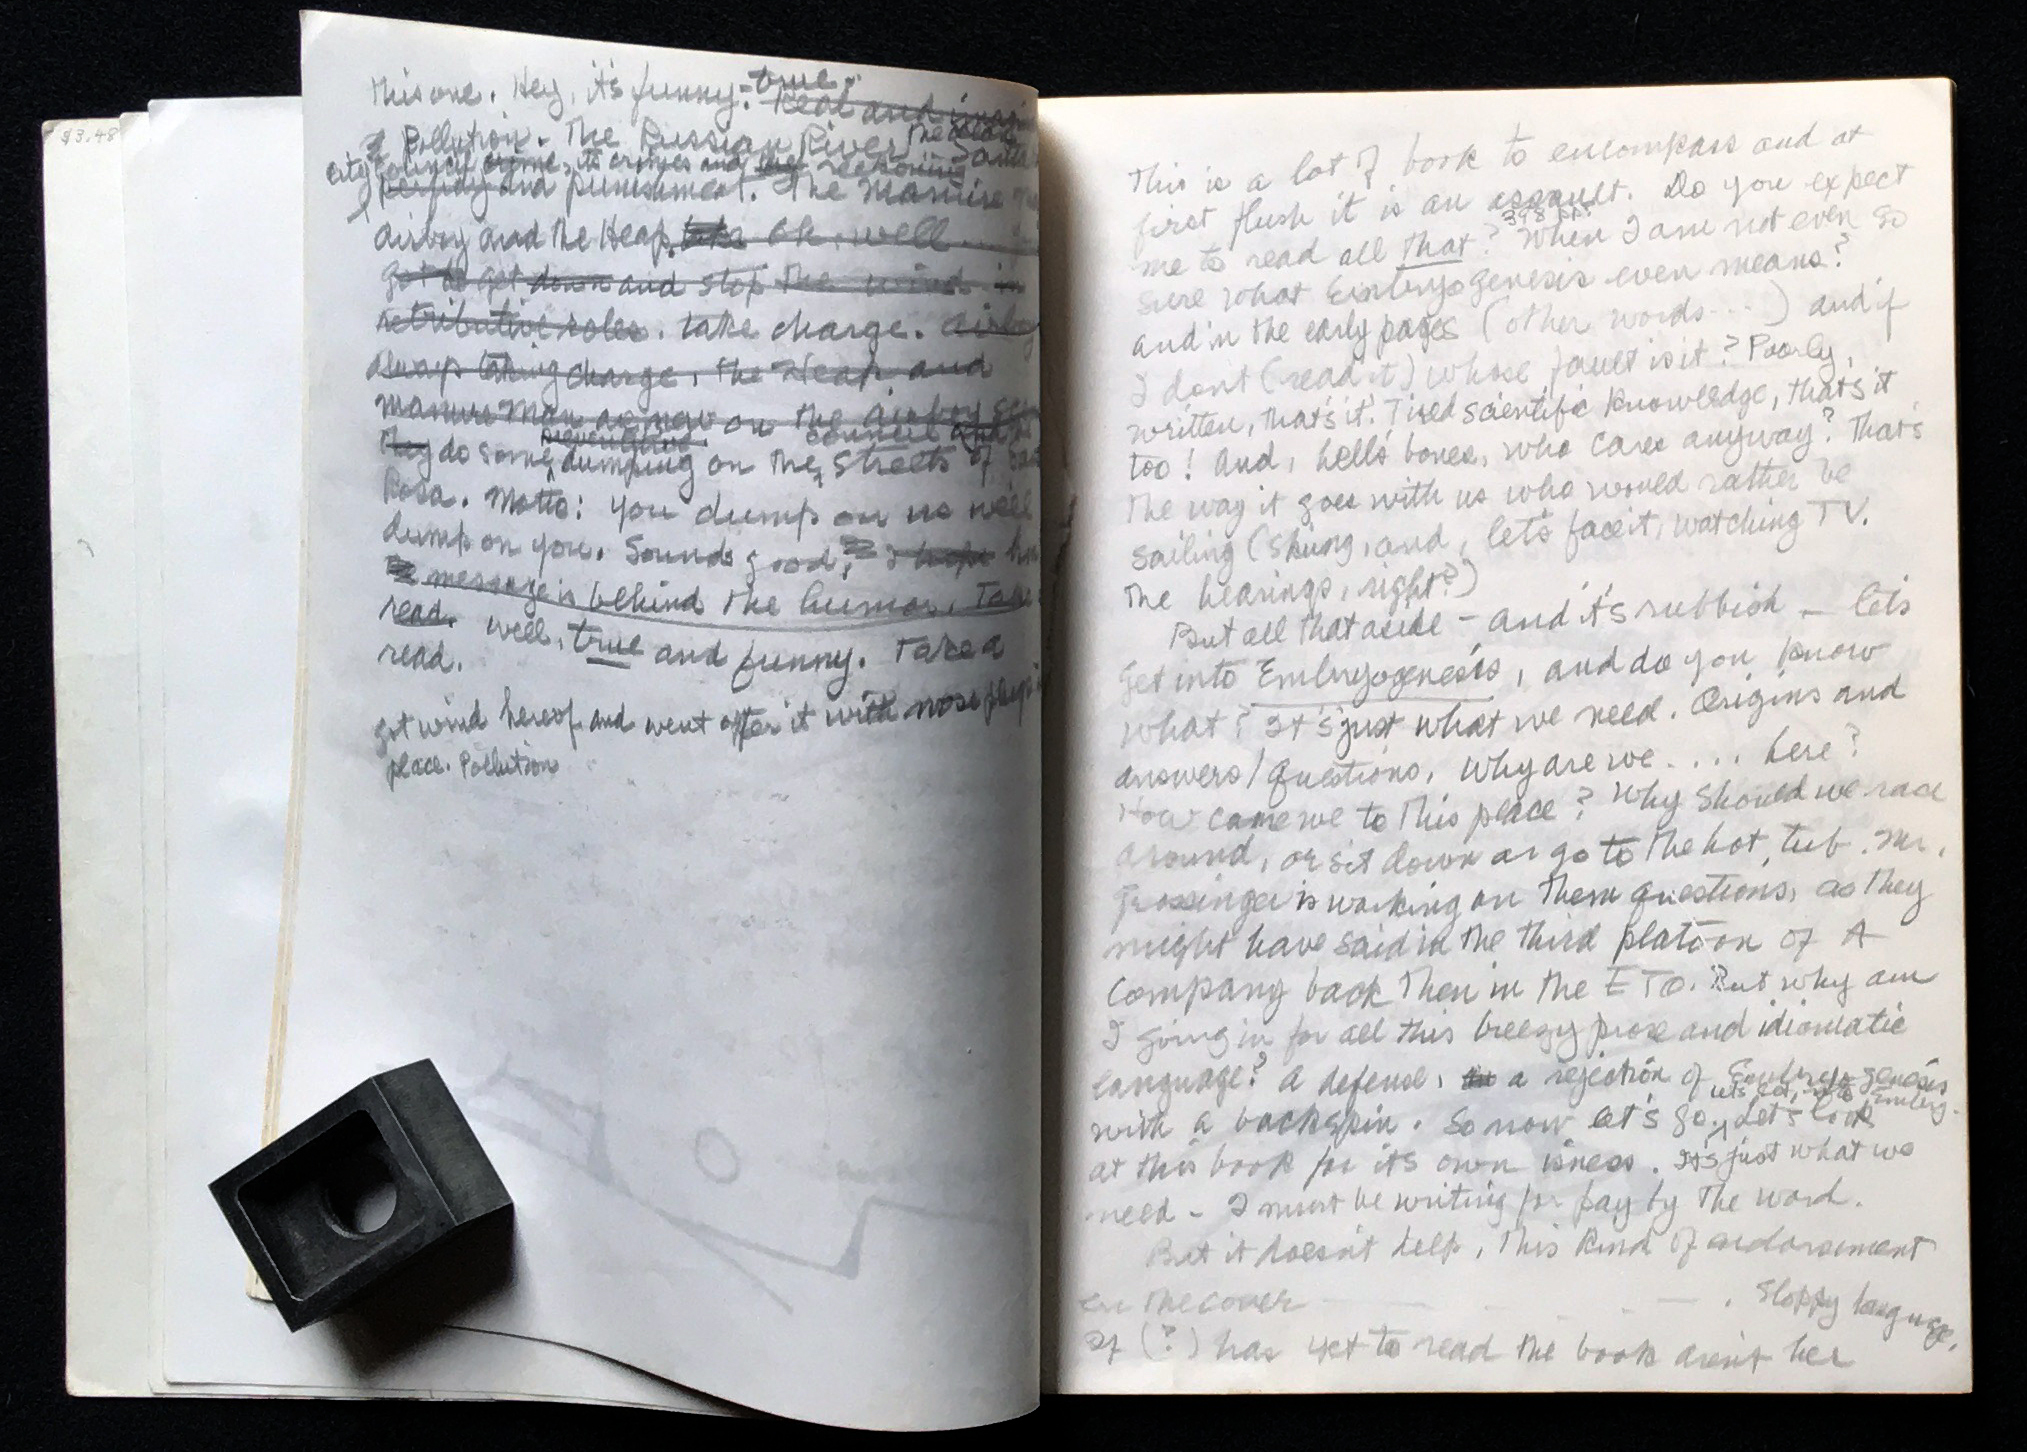 $3.48
This one. Hey, it's funny - true.
Real and
Pollution. The Russian River, The
city council crime, its crimes and reckoning
Perfidy and punishment. The Manure
Airboy and the Heap, take Oh, well
got to get down and stop the wind in
retributive roles. take charge. Airboy
always taking charge, the Heap and
manure man as new on the Airboy
They do some dumping on the streets of
council
Rosa. Motto: You dump on us we'll
dump on you. Sounds good, I hope
message is behind the humor. Take
read. well, true and funny. Take a
read.
got wind hereof and went after it with nose
place. Pollution
This is a lot of book to encompass and at
first flush it is an assault. Do you expect
398 pp.
me to read all that? When I am not even so
sure what Embryogenesis even means?
and in the early pages (other words...) and if
I don't (read it) whose fault is it? Poorly,
written, that's it! Tired scientific knowledge, that's it
too! And, hell's bones, who cares anyway? That's
the way it goes with us who would rather be
sailing (skiing, and, let's face it, watching TV.
The hearings, right?)
But all that aside - and it's rubbish - let's
get into Embryogenesis, and do you know
what? It's just what we need. Origins and
answers/questions, Why are we .... here?
How came we to this place? Why should we race
around, or sit down or go to the hot tub. Mr.
Grossinger is working on them questions, as they
might have said in the third platoon of A
Company back then in the ETO. But why am
I going in for all this breezy prose and idiomatic
language? A defense, a rejection of Embryogenesis
let's get into Embryo-
with a backspin. So now let's go, Let's look
at this book for its own isness. It's just what we
need - I must be writing for pay by the word.
But it doesn't help, this kind of endorsement
on the cover - - - . Sloppy language,
of (?) has yet to read the book aren't her